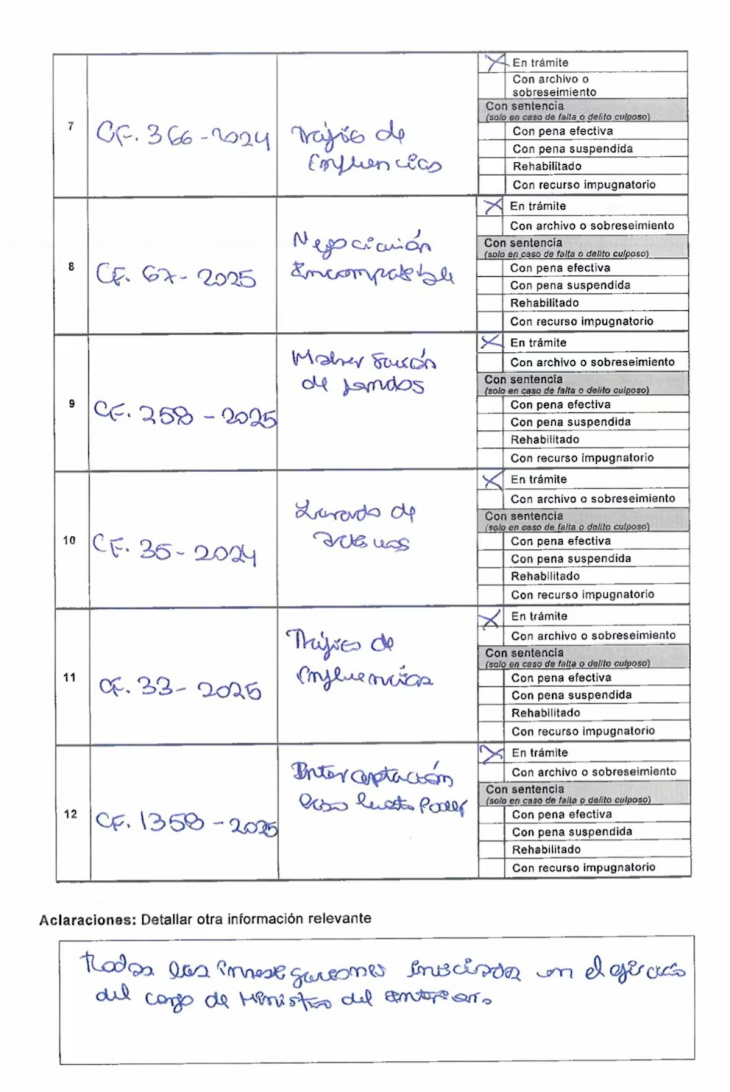 En trámite
Con archivo o
sobreseimiento
Con sentencia
(solo en caso de falta o delito culposo)
7 CF. 366-2024 Tráfico de
Influencias
Con pena efectiva
Con pena suspendida
Rehabilitado
Con recurso impugnatorio
En trámite
Con archivo o sobreseimiento
Con sentencia
(solo en caso de falta o delito culposo)
8 CF. 67-2025 Negociación
Incompatible
Con pena efectiva
Con pena suspendida
Rehabilitado
Con recurso impugnatorio
En trámite
Con archivo o sobreseimiento
Con sentencia
(solo en caso de falta o delito culposo)
9 CF. 258-2025 Malversación
de fondos
Con pena efectiva
Con pena suspendida
Rehabilitado
Con recurso impugnatorio
En trámite
Con archivo o sobreseimiento
Con sentencia
(solo en caso de falta o delito culposo)
10 CF. 35-2024 Lavado de
activos
Con pena efectiva
Con pena suspendida
Rehabilitado
Con recurso impugnatorio
En trámite
Con archivo o sobreseimiento
Con sentencia
(solo en caso de falta o delito culposo)
11 CF. 33-2025 Tráfico de
Influencias
Con pena efectiva
Con pena suspendida
Rehabilitado
Con recurso impugnatorio
En trámite
Con archivo o sobreseimiento
Con sentencia
(solo en caso de falta o delito culposo)
12 CF. 1358-2025 Interceptación
caso
Con pena efectiva
Con pena suspendida
Rehabilitado
Con recurso impugnatorio
Aclaraciones: Detallar otra información relevante
Todas las investigaciones iniciadas en el ejercicio
del cargo de Ministro del Interior.